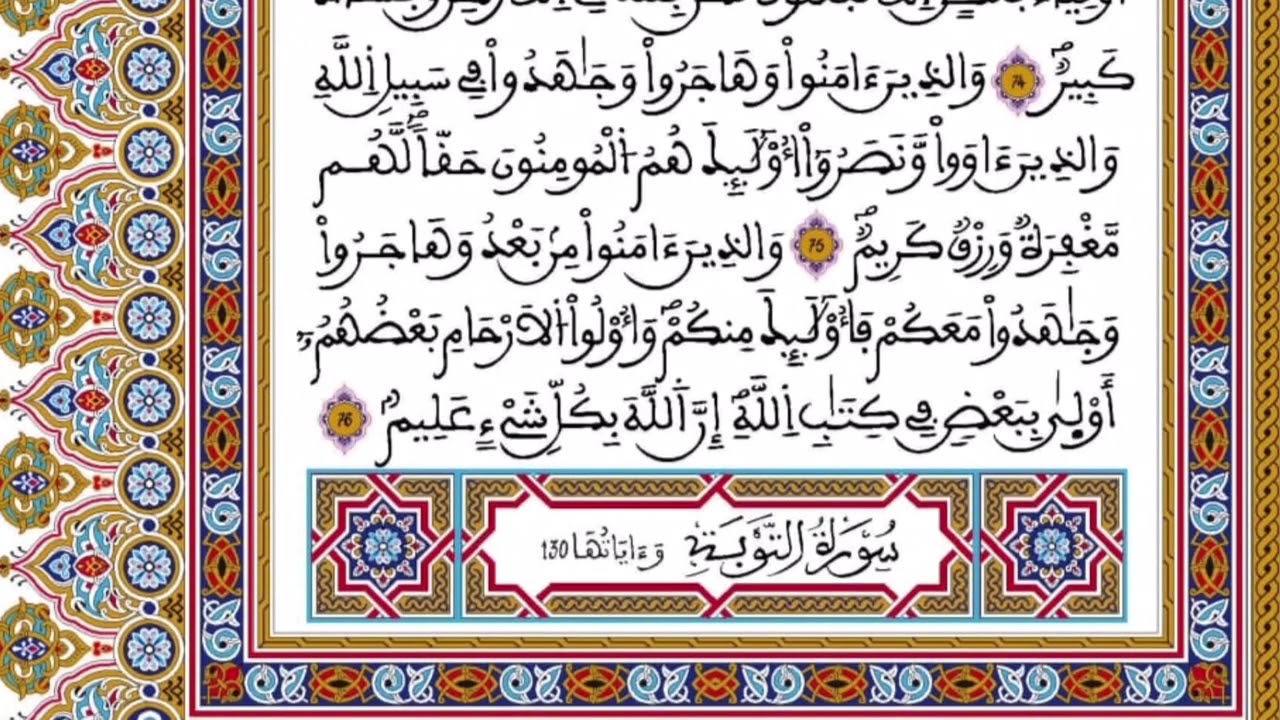 كَبِيرٌ 74 وَالذِينَ ءَامَنُواْ وَهَاجَرُواْ وَجَٰهَدُواْ فِے سَبِيلِ اِ۬للَّهِ
وَالذِينَ ءَاوَواْ وَّنَصَرُوٓاْ أُوْلَٰٓئِكَ هُمُ اُ۬لْمُومِنُونَ حَقّاٗ لَّهُم
مَّغْفِرَةٞ وَرِزْقٞ كَرِيمٞ 75 وَالذِينَ ءَامَنُواْ مِنۢ بَعْدُ وَهَاجَرُواْ
وَجَٰهَدُواْ مَعَكُمْ فَأُوْلَٰٓئِكَ مِنكُمْ وَأُوْلُواْ اُ۬لَارْحَامِ بَعْضُهُمُۥٓ
أَوْلَىٰ بِبَعْضٖ فِے كِتَٰبِ اِ۬للَّهِ إِنَّ اَ۬للَّهَ بِكُلِّ شَےْءٍ عَلِيمٞ 76
سُورَةُ التَّوْبَةِ وَءَايَاتُهَا 130